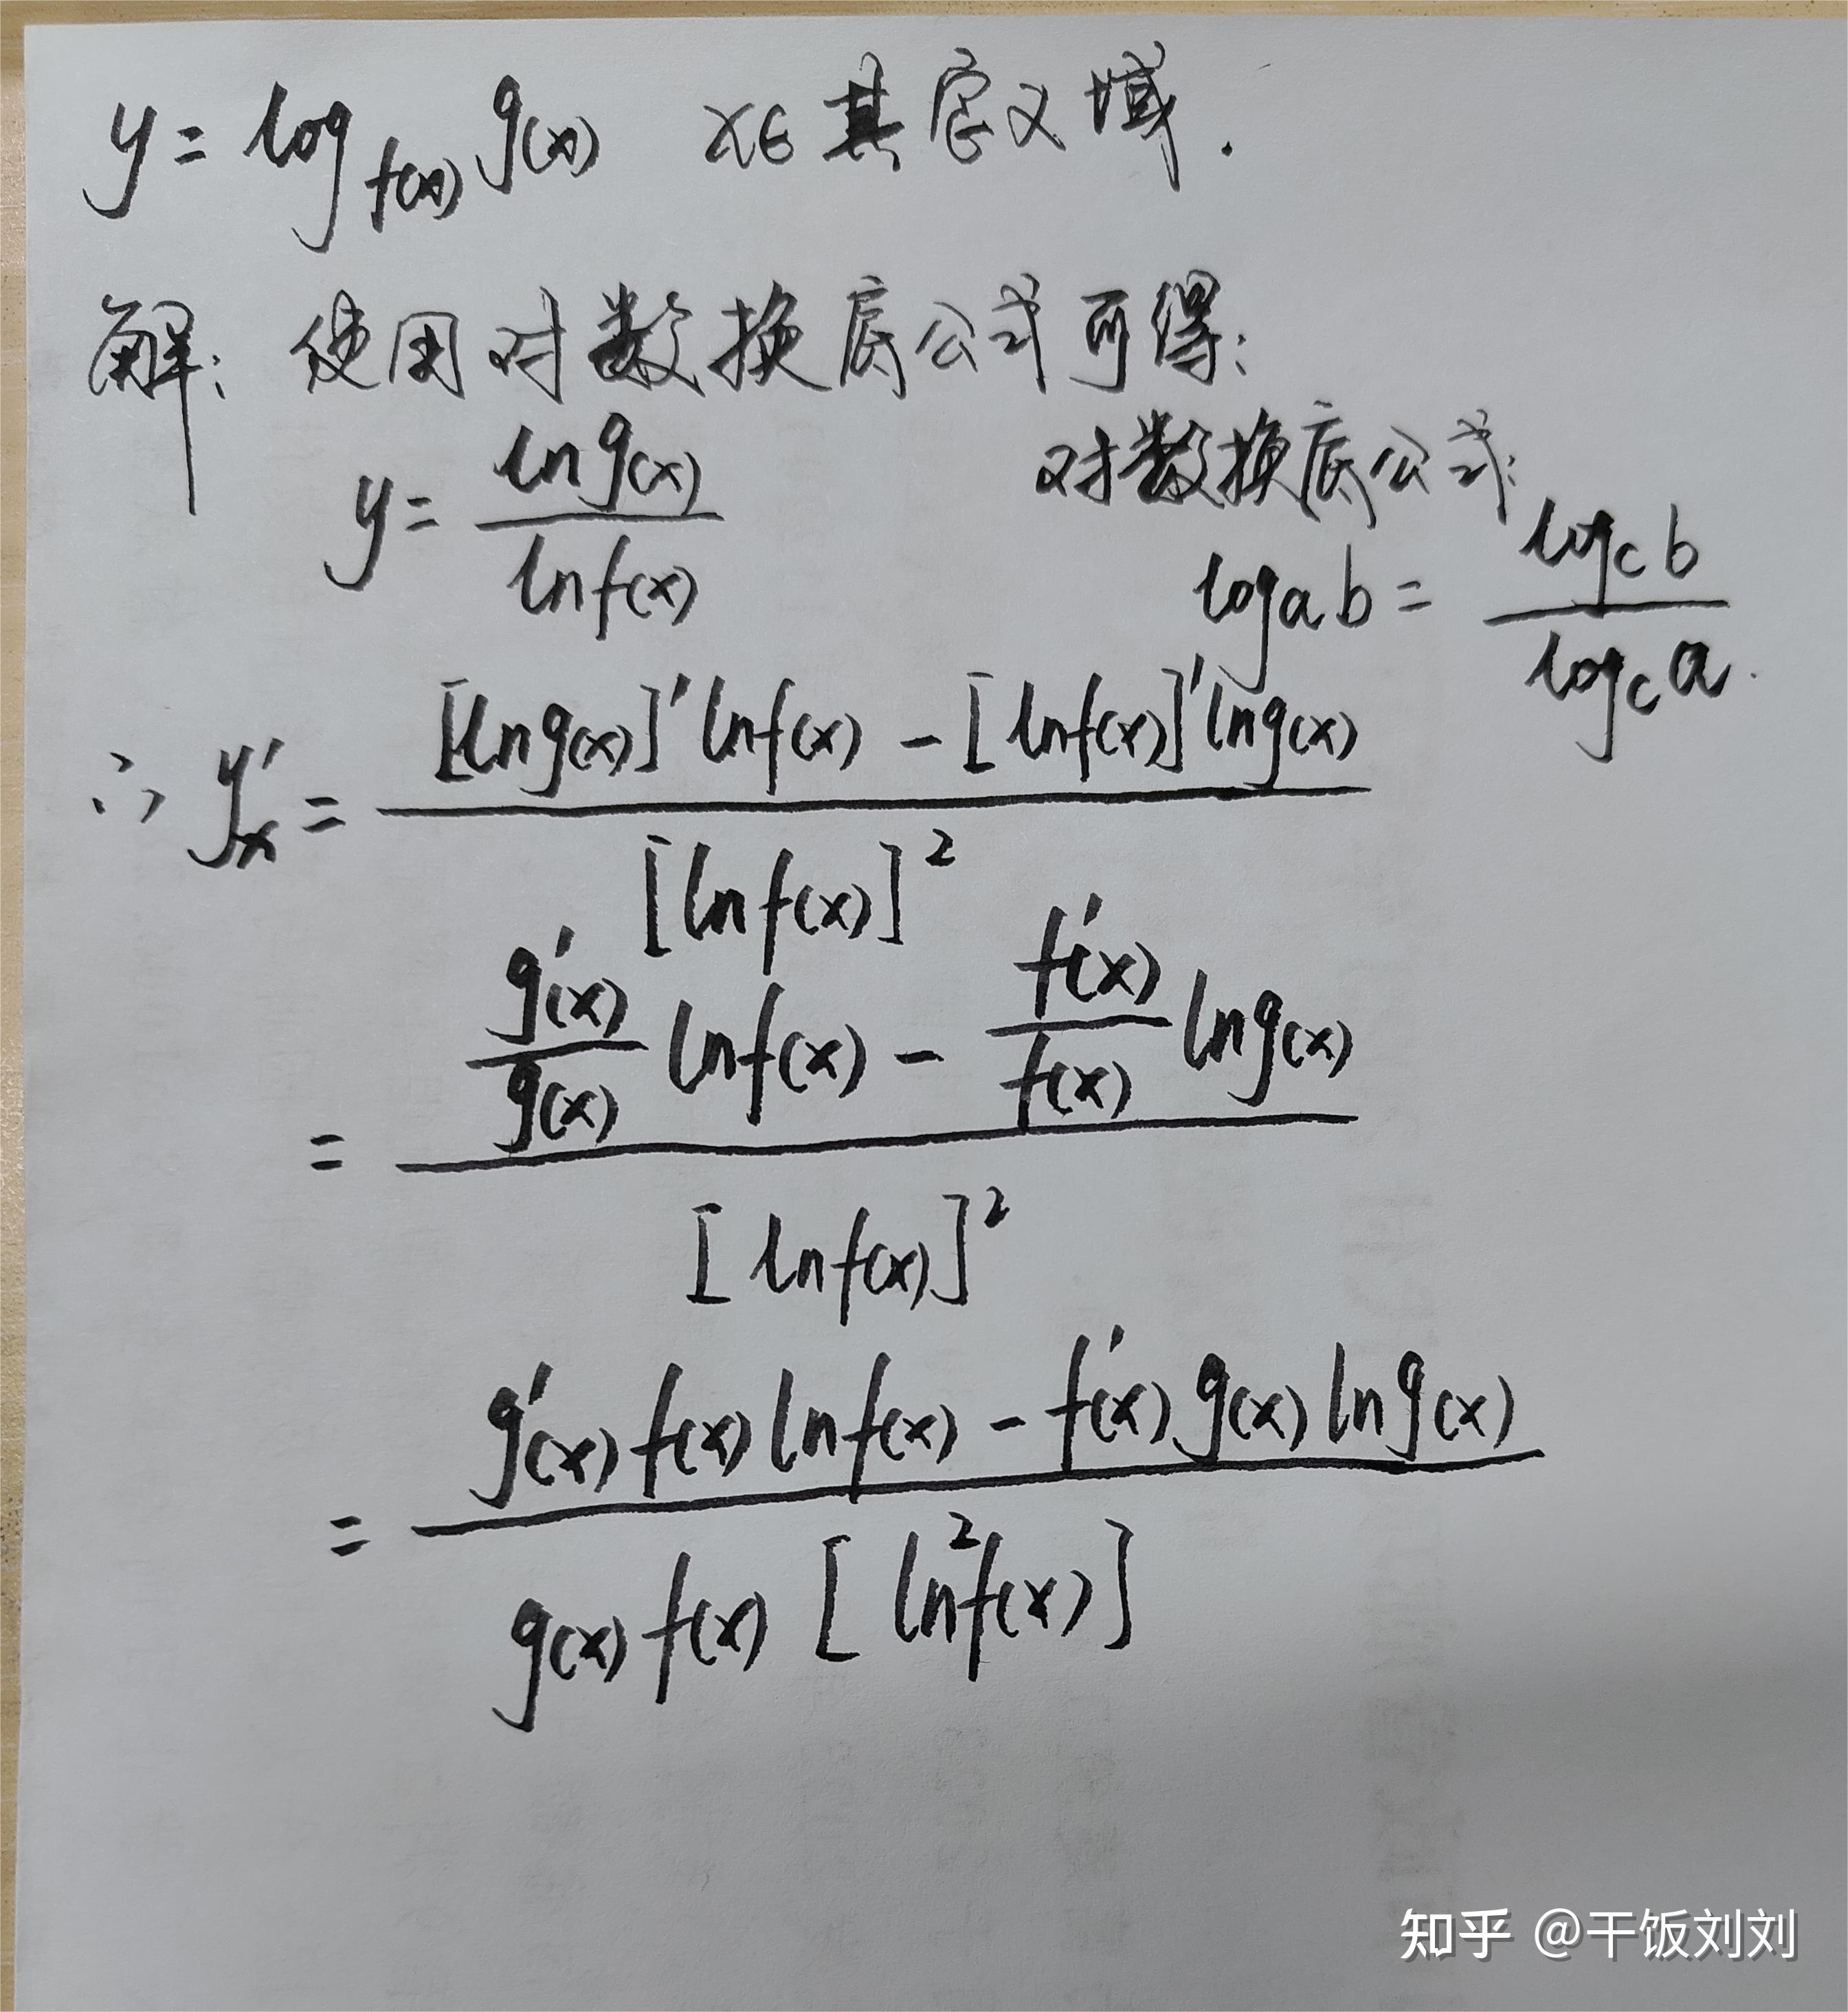 y = log_{f(x)} g(x) x∈其定义域.
解: 使用对数换底公式可得:
y = \frac{ln g(x)}{ln f(x)}
对数换底公式:
log_a b = \frac{log_c b}{log_c a}.
∴ y'_x = \frac{[ln g(x)]' ln f(x) - [ln f(x)]' ln g(x)}{[ln f(x)]^2}
= \frac{\frac{g'(x)}{g(x)} ln f(x) - \frac{f'(x)}{f(x)} ln g(x)}{[ln f(x)]^2}
= \frac{g'(x) f(x) ln f(x) - f'(x) g(x) ln g(x)}{g(x) f(x) [ln^2 f(x)]}
知乎 @干饭刘刘